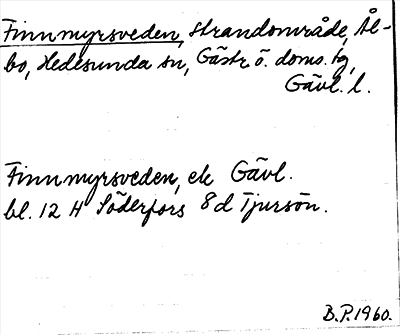 Finnmyrsveden, strandområde, Ål-
bo, Hedesunda sn, Gästr ö. doms. tg,
Gävl. l.
Finnmyrsveden, ek Gävl.
bl. 12 H Söderfors 8d Tjursön.
B.P. 1960.